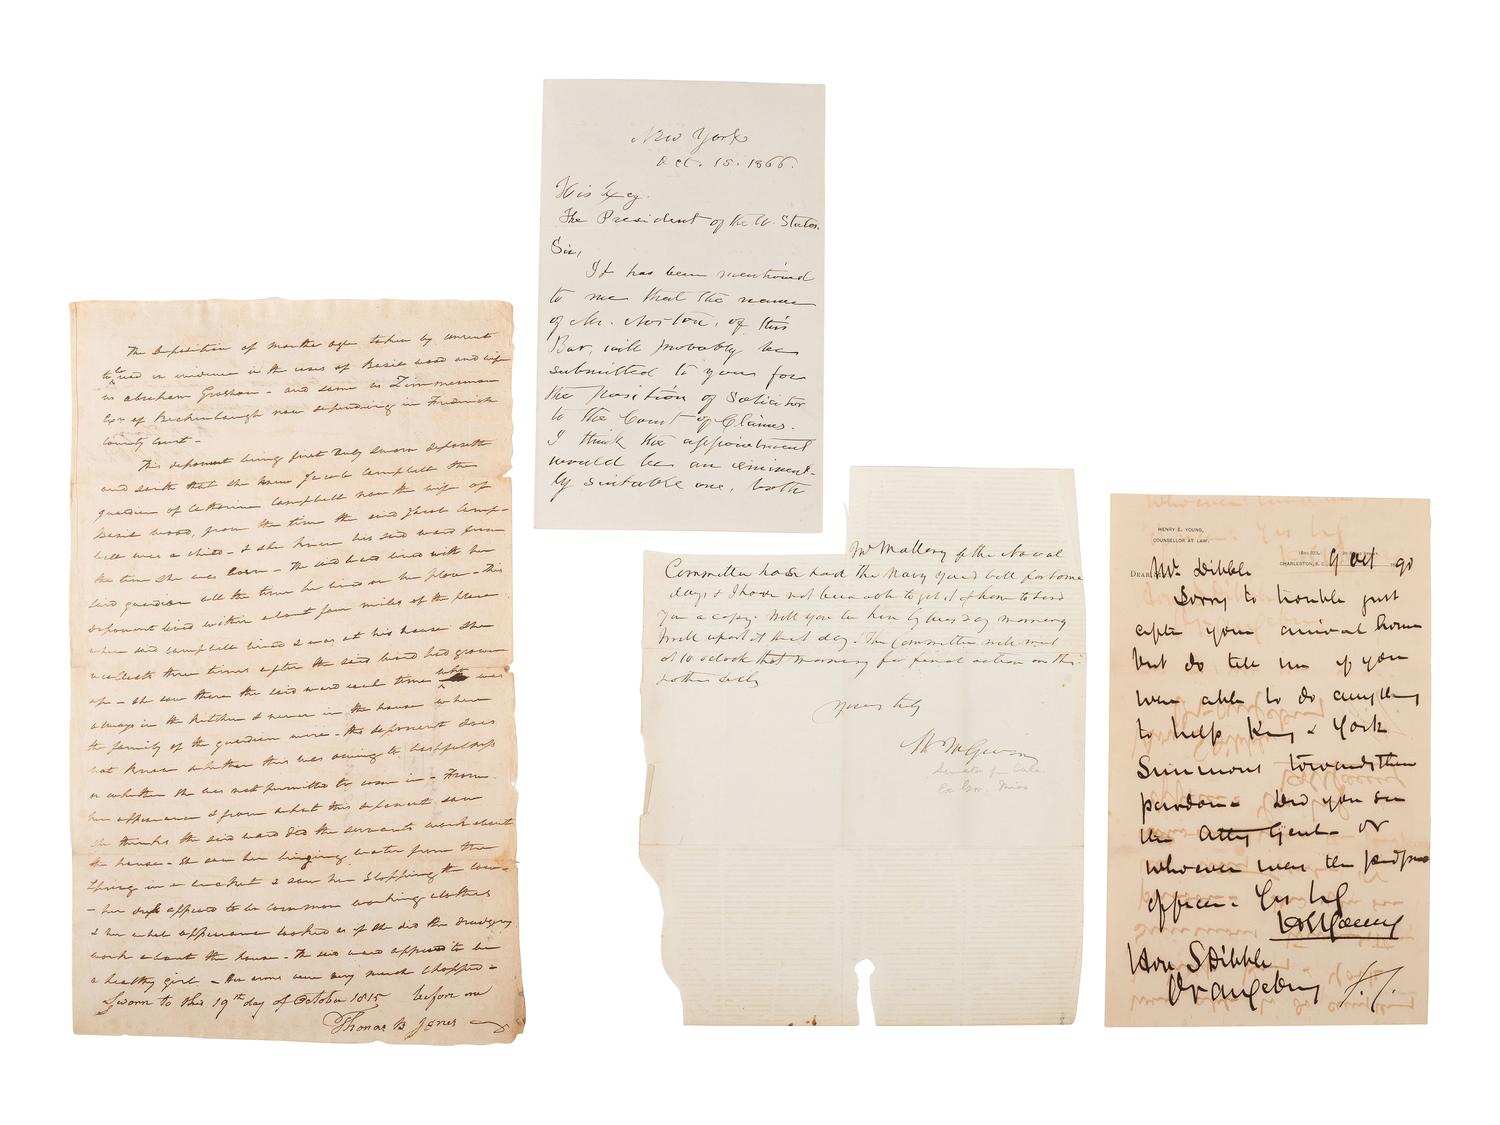 The deposition of Martha Ogle taken by consent
to be used in evidence in the cases of Basil Wood and wife
vs Abraham Grosham - and same vs Zimmerman
Exr of Buckenbaugh now depending in Frederick
County Court -
This deponent being first duly sworn deposeth
and saith that she knew Jacob Campbell the
guardian of Catharine Campbell now the wife of
Basil Wood, from the time the said Jacob Camp-
bell was a child - & she knew his said ward from
the time she was born - The said ward lived with her
said guardian all the time he lived on his place - This
deponent lived within about four miles of the place
where said Campbell lived & was at his house she
three times after the said ward had grown
up - she saw there the said ward each time who was
always in the kitchen & never in the house where
the family of the guardian were - this deponent does
not know whether this was owing to bashfulness
or whether she was not permitted to come in - From
her appearance & from what this deponent saw
she thinks the said ward did the servants work about
the house - she saw her bringing water from the
spring in a bucket & saw her slopping the cow-
- her dress appeared to be common working clothes
& her whole appearance looked as if she did the drudgery
work about the house - The said ward appeared to be
a healthy girl - her arms were very much chopped -
Sworn to this 19th day of October 1815 before me
Thomas B Jones
New York
Oct. 15. 1866.
His Excy.
The President of the U. States.
Sir,
It has been mentioned
to me that the name
of Mr. Norton, of this
Bar, will probably be
submitted to you for
the position of Solicitor
to the Court of Claims.
I think the appointment
would be an eminent-
ly suitable one, both
Mr Mallory of the Naval
Committee has had the Navy Yard bill for some
days & I have not been able to get it of him to send
you a copy. Will you be here by wednesday morning
will report it that day. The Committee will meet
at 10 oclock that morning for final action on this
& other bills
Yours truly
W M Gwin
Senator from Cala
Ex Gov. Miss
HENRY E. YOUNG,
COUNSELLOR AT LAW.
CHARLESTON, S. C. 9 Oct 90
DEAR Mr. Dibble
Sorry to trouble just
after your arrival home
but do tell me if you
were able to do anything
to help King & York
Simmons towards their
pardon - Did you see
the Atty Genl - or
whoever was the proper
officer - Yrs truly
H E Young
Hon S Dibble
Orangeburg